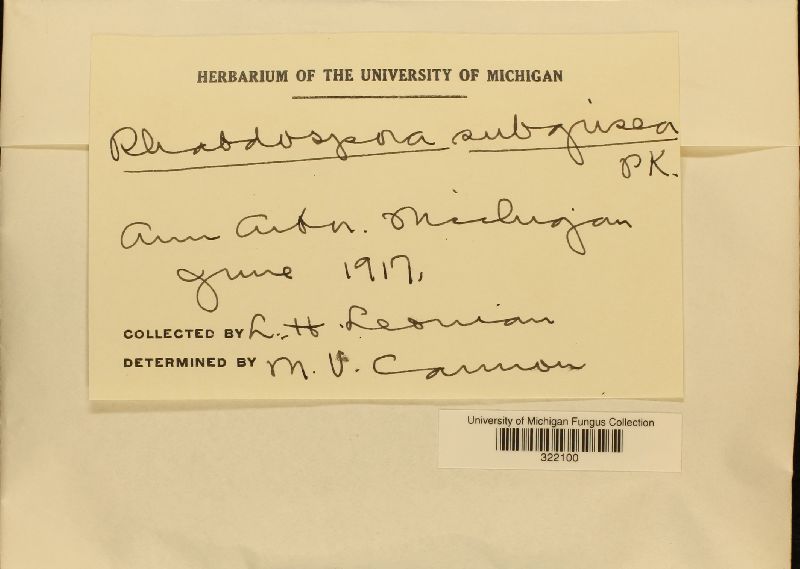 HERBARIUM OF THE UNIVERSITY OF MICHIGAN
Rhabdospora subgrisea
PK.
Ann Arbor. Michigan
June 1917.
COLLECTED BY L. H. Leonian
DETERMINED BY M. V. Cannon
University of Michigan Fungus Collection
322100